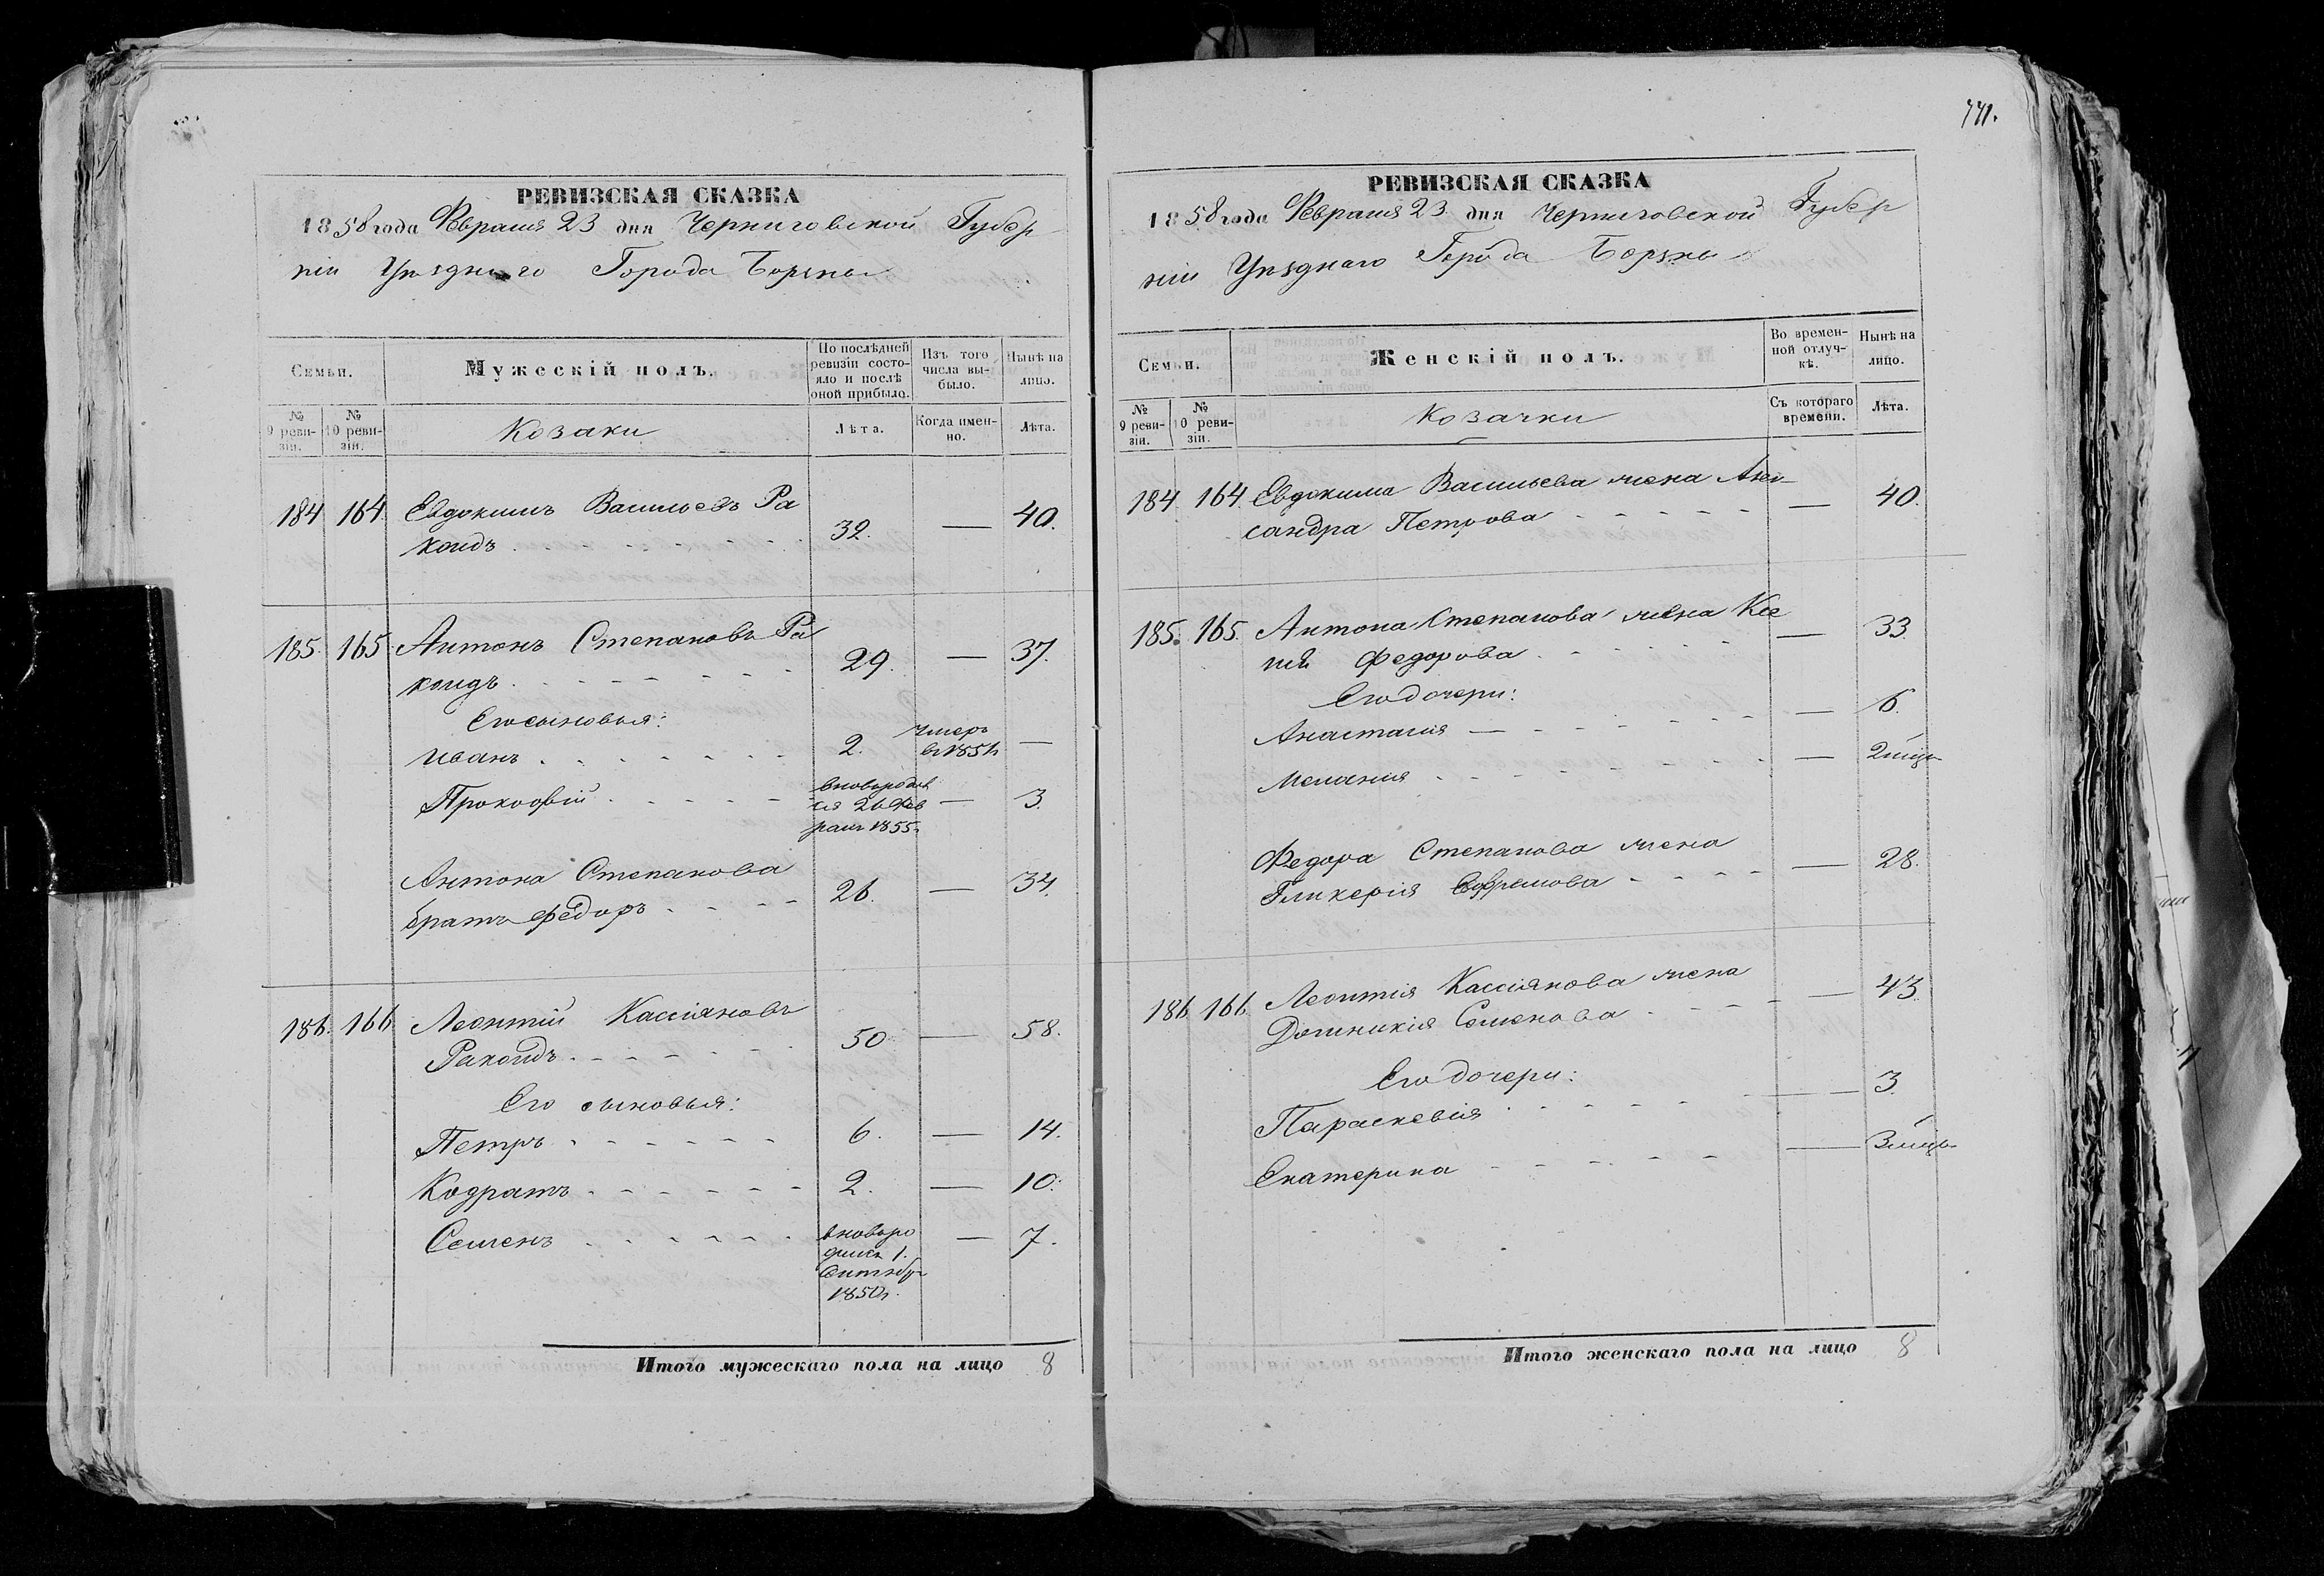 РЕВИЗСКАЯ СКАЗКА
1858 года Февраля 23 дня Черниговской Губер
ніи Уѣзднаго Города Борзны
Семьи.
Мужескій полъ.
По послѣдней ревизіи состояло и послѣ оной прибыло.
Изъ того числа выбыло.
Нынѣ на лицо.
№ 9 ревизіи.
№ 10 ревизіи.
Козаки
Лѣта.
Когда именно.
Лѣта.
184 164 Евдокимъ Васильевъ Ра
коидъ 32. — 40.
185. 165 Антонъ Степановъ Ра
коидъ 29. — 37.
Его сыновья:
Иванъ 2. умеръ
въ 1851г —
Прокофій вновь родил
ся 26 Фев — 3.
раля 1855г
Антона Степанова
братъ Федоръ 26. — 34.
186. 166 Леонтій Кассіяновъ
Ракоидъ 50 — 58.
Его сыновья:
Петръ 6. — 14.
Кодратъ 2. — 10.
Семенъ вновь ро — 7.
дился 1.
Сентября
1850г.
Итого мужескаго пола на лицо 8
771.
РЕВИЗСКАЯ СКАЗКА
1858 года Февраля 23 дня Черниговской Губер
ніи Уѣзднаго Города Борзны
Семьи.
Женскій полъ.
Во временной отлучкѣ.
Нынѣ на лицо.
№ 9 ревизіи.
№ 10 ревизіи.
Козачки
Съ котораго времени.
Лѣта.
184 164 Евдокима Васильева жена Алек
сандра Петрова — 40.
185. 165. Антона Степанова жена Ксе
нія Федорова — 33.
Его дочери:
Анастасія — 6.
Меланія — 2 мѣсц
Федора Степанова жена
Гликерія Ефремова — 28.
186 166. Леонтія Кассіянова жена
Доминикія Семенова — 43.
Его дочери:
Параскевія — 3.
Екатерина — 3 мѣсц
Итого женскаго пола на лицо 8